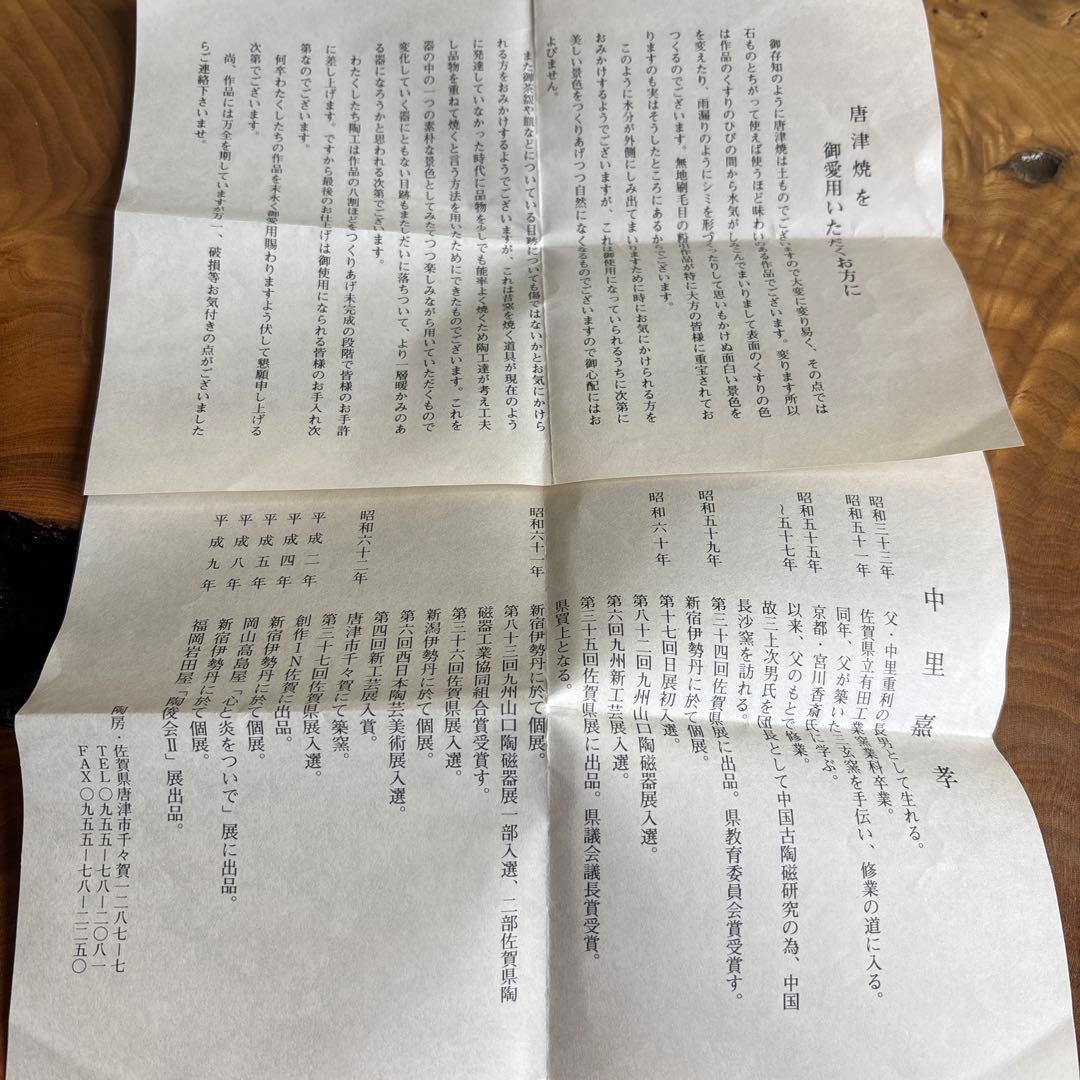 唐津焼を
御愛用いただくお方に
御存知のように唐津焼は土ものでございますので大変に変り易く、その点では
石ものとちがって使えば使うほど味わいのある作品でございます。変ります所以
は作品のくすりのひびの間から水気がしみこんでまいりまして表面のくすりの色
を変えたり、雨漏りのようにシミを形づくったりして思いもかけぬ面白い景色を
つくるのでございます。無地刷毛目の粉引作品が特に大方の皆様に重宝されてお
りますのも実はそうしたところにあるかでございます。
このように水分が外側にしみ出てまいりますために時にお気にかけられる方を
おみかけするようでございますが、これは御使用になっていられるうちに次第に
美しい景色をつくりあげつつ自然になくなるものでございますので御心配にはお
よびません。
また御茶盌や皿などについている目跡についても傷ではないかとお気にかけら
れる方をおみかけするようでございますが、これは昔窯を焼く道具が現在のよう
に発達していなかった時代に品物を少しでも能率よく焼くため陶工達が考え工夫
し品物を重ねて焼くと言う方法を用いたためにできたものでございます。これを
器の中の一つの素朴な景色としてみたてつつ楽しみながら用いていただくもので
変化していく器にともない目跡もまたしだいに落ちついて、より一層暖かみのあ
る器になろうかと思われる次第でございます。
わたくしたち陶工は作品の八割ほどをつくりあげ未完成の段階で皆様のお手許
に差し上げます。ですから最後のお仕上げは御使用になられる皆様のお手入れ次
第なのでございます。
何卒わたくしたちの作品を末永く御愛用賜わりますよう伏して懇願申し上げる
次第でございます。
尚、作品には万全を期していますが万一、破損等お気付きの点がございました
らご連絡下さいませ。
中里嘉孝
昭和三十三年 父・中里重利の長男として生れる。
昭和五十一年 佐賀県立有田工業窯業科卒業。
同年、父が築いた三玄窯を手伝い、修業の道に入る。
昭和五十五年 京都・宮川香斎氏に学ぶ。
～五十七年 以来、父のもとで修業。
故三上次男氏を団長として中国古陶磁研究の為、中国
長沙窯を訪れる。
昭和五十九年 第三十四回佐賀県展に出品。県教育委員会賞受賞す。
新宿伊勢丹に於て個展。
第十七回日展初入選。
昭和六十年 第八十二回九州山口陶磁器展入選。
第六回九州新工芸展入選。
第三十五回佐賀県展に出品。県議会議長賞受賞。
県買上となる。
昭和六十一年 新宿伊勢丹に於て個展。
第八十三回九州山口陶磁器展一部入選、二部佐賀県陶
磁器工業協同組合賞受賞す。
第三十六回佐賀県展入選。
新潟伊勢丹に於て個展。
第六回西日本陶芸美術展入選。
昭和六十二年 第四回新工芸展入賞。
唐津市千々賀にて築窯。
第三十七回佐賀県展入選。
平成二年 創作IN佐賀に出品。
平成四年 新宿伊勢丹に於て個展。
平成五年 岡山高島屋に於て個展。
平成八年 新宿伊勢丹「心と炎をついで」展に出品。
平成九年 福岡岩田屋に於て個展。
「陶俊会Ⅱ」展出品。
陶房・佐賀県唐津市千々賀一二八七ー七
TEL〇九五五ー七八ー二〇八一
FAX〇九五五ー七八ー二二五〇